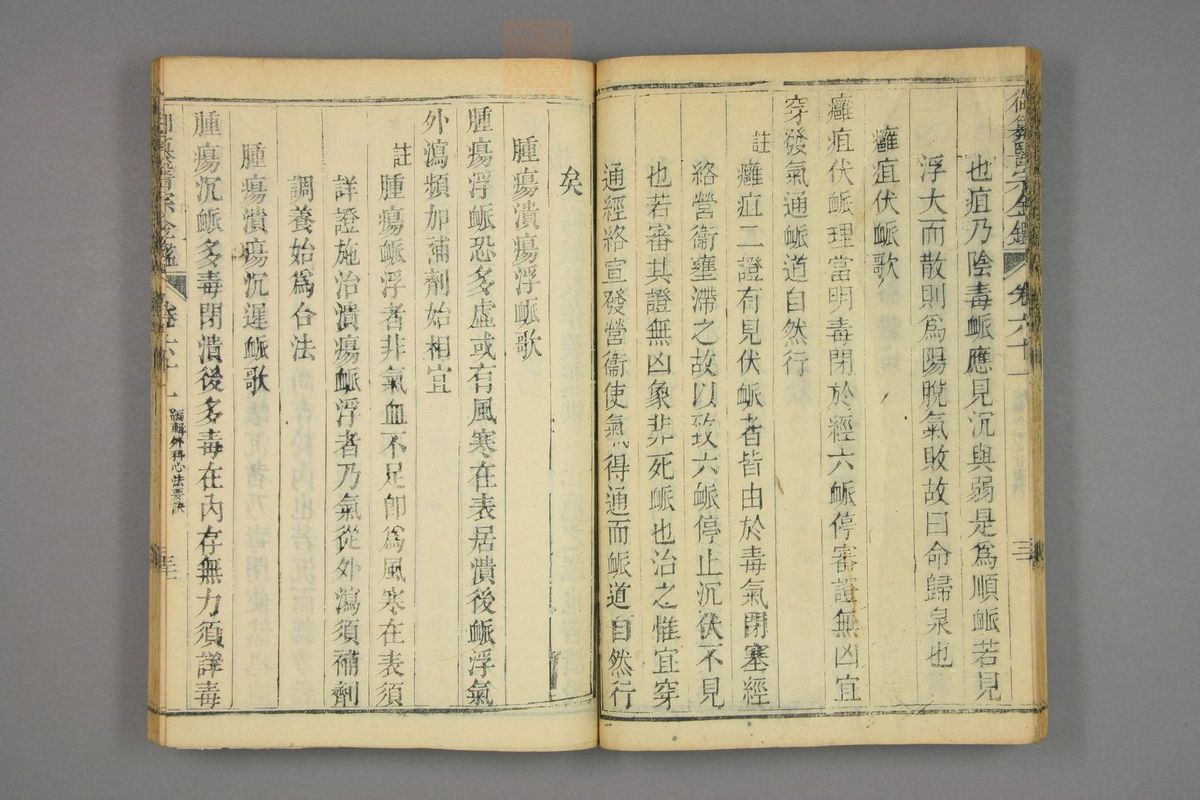 御纂醫宗金鑑 卷六十一 三
也疽乃陰毒衇應見沉與弱是爲順衇若見
浮大而散則爲陽脫氣敗故曰命歸泉也
癰疽伏衇歌
癰疽伏衇理當明毒閉於經六衇停審證無凶宜
穿發氣通衇道自然行
註癰疽二證有見伏衇者皆由於毒氣閉塞經
絡營衞壅滯之故以致六衇停止沉伏不見
也若審其證無凶象非死衇也治之惟宜穿
通經絡宣發營衞使氣得通而衇道自然行
矣
腫瘍潰瘍浮衇歌
腫瘍浮衇恐多虛或有風寒在表居潰後衇浮氣
外瀉頻加補劑始相宜
註腫瘍衇浮者非氣血不足卽爲風寒在表須
詳證施治潰瘍衇浮者乃氣從外瀉須補劑
調養始爲合法
腫瘍潰瘍沉遲衇歌
腫瘍沉衇多毒閉潰後多毒在內存無力須詳毒
醫宗金鑑 卷六十一 編輯外科心法要訣